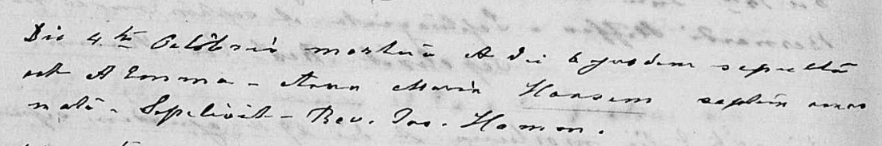 Die 4ta Octobris mortua & die 6 ejusdem sepulta
est & Emma - Anna Maria Hansem septem annos
nata - Sepelivit - Rev. Jos. Hamon.